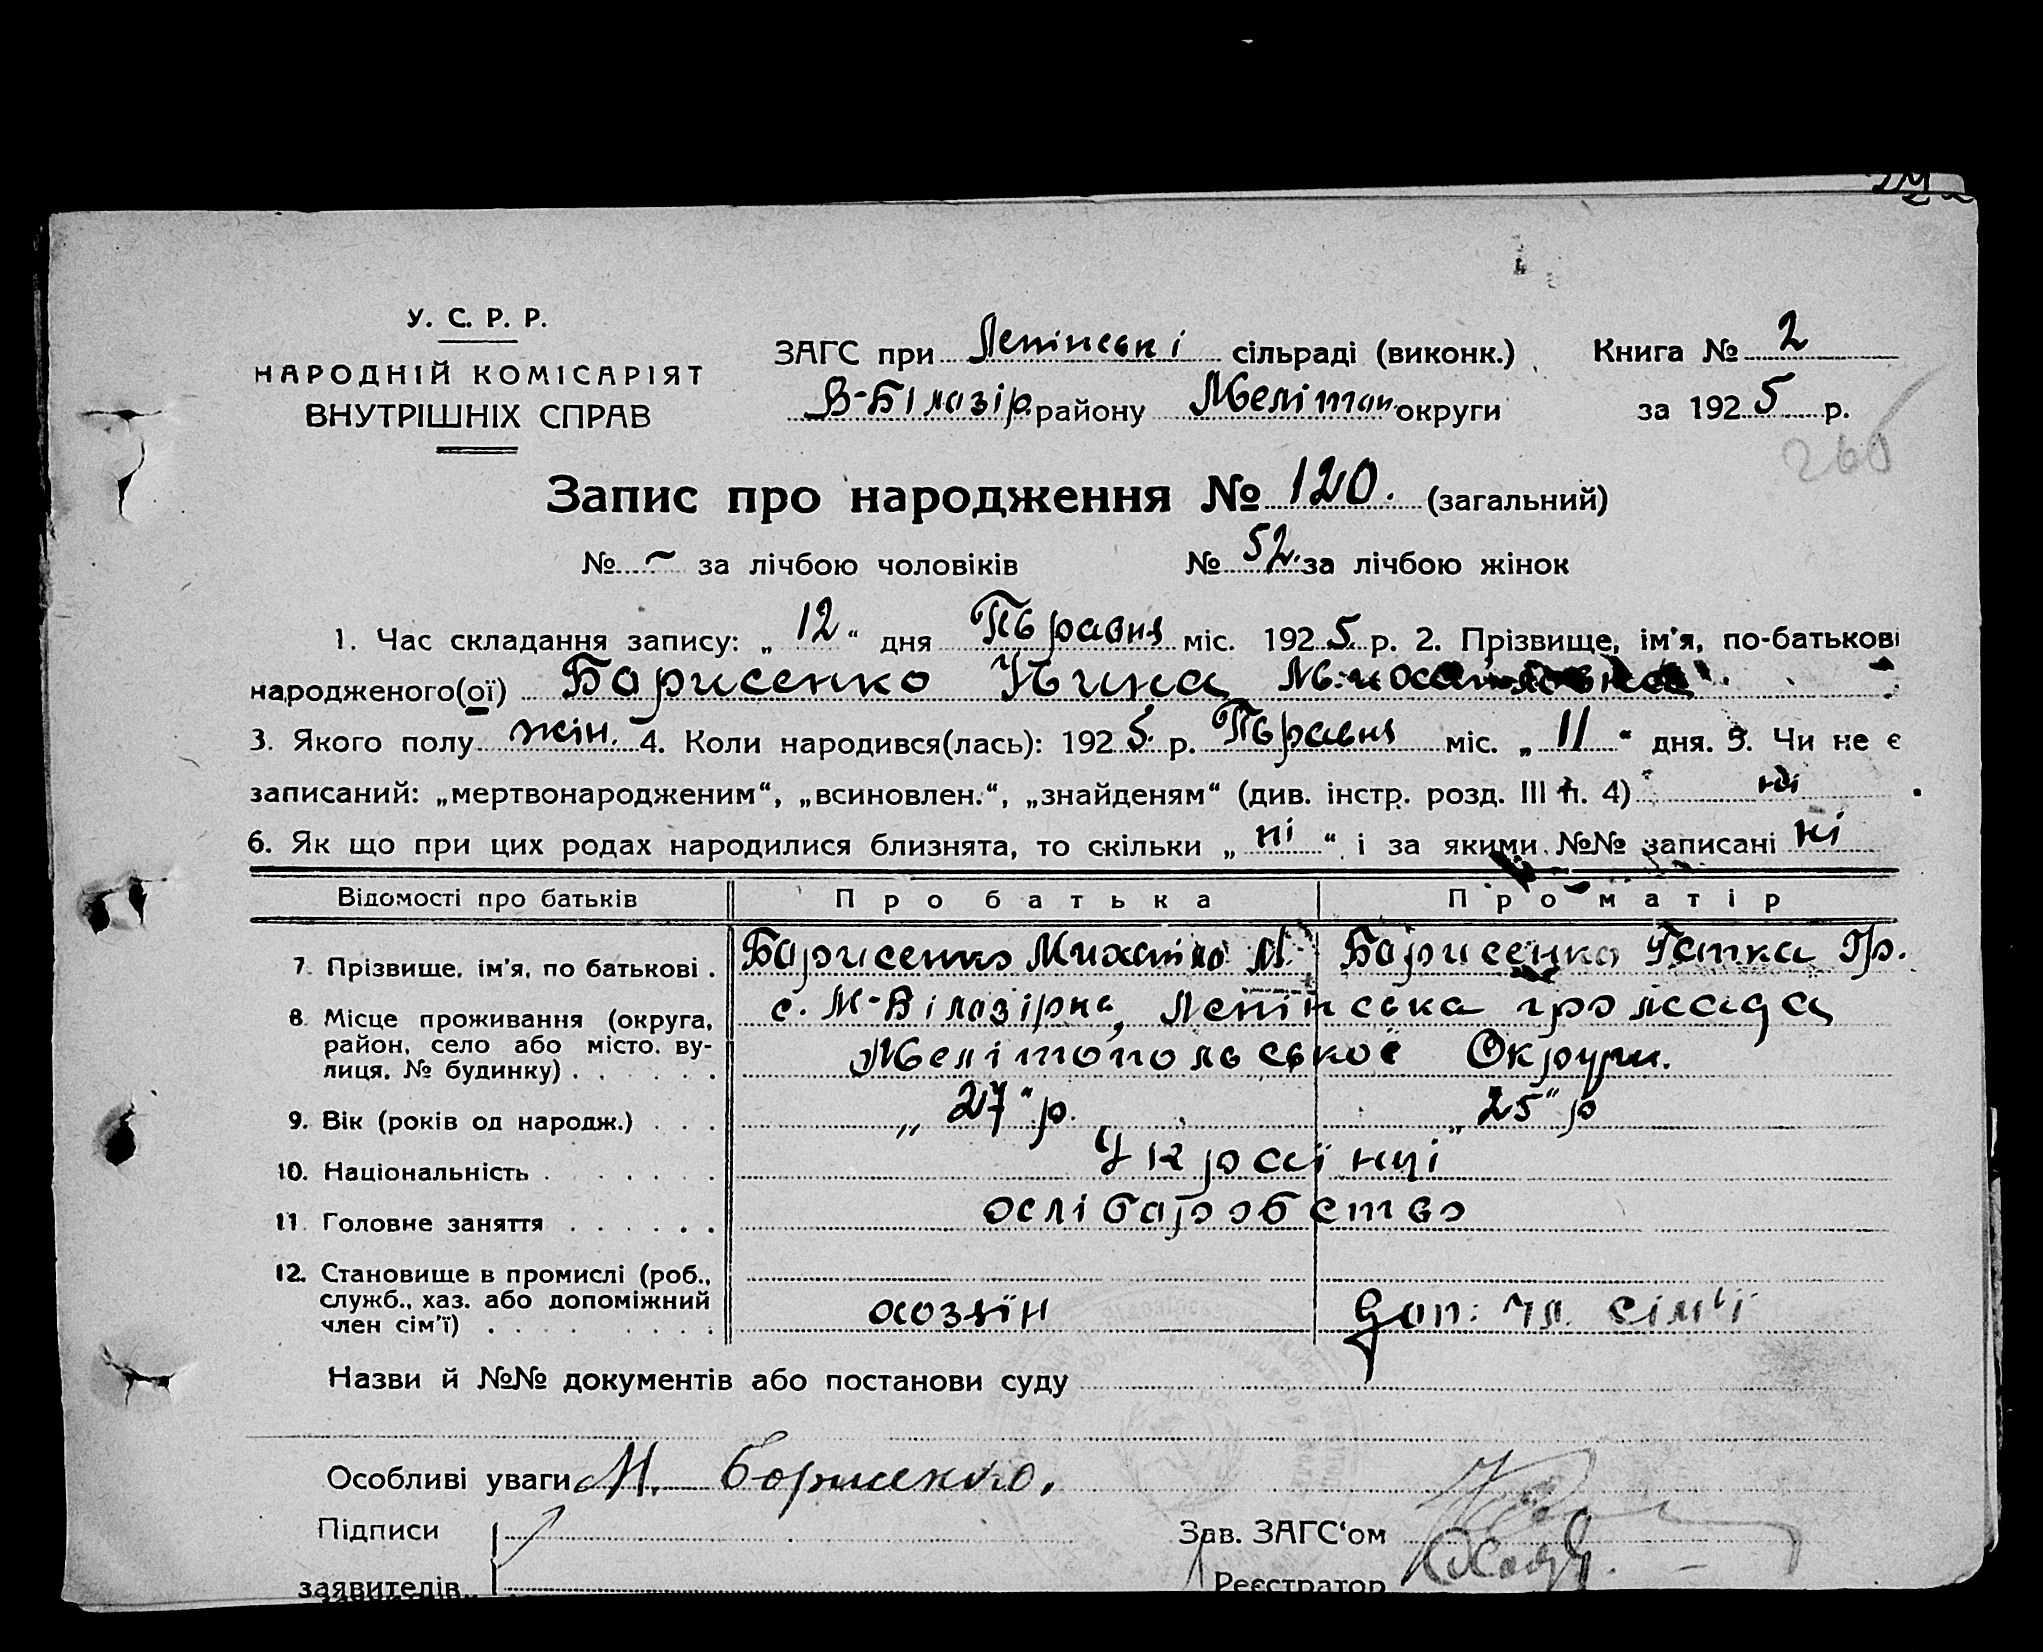 У. С. Р. Р.
НАРОДНІЙ КОМІСАРІЯТ
ВНУТРІШНІХ СПРАВ
ЗАГС при Ленінські сільраді (виконк.) Книга № 2
В-Білазір. району Мелітоп. округи за 1925 р.
260
Запис про народження № 120. (загальний)
№ – за лічбою чоловіків № 52. за лічбою жінок
1. Час складання запису: „ 12 “ дня міс. 1925 р. 2. Прізвище, ім'я, по-батькові
народженого(ої) Борисенко Нина
3. Якого полу жін. 4. Коли народився(лась): 1925 р. міс. „ 11 “ дня. 5. Чи не є
записаний: „мертвонародженим“, „всиновлен.“, „знайденям“ (див. інстр. розд. III п. 4) ні
6. Як що при цих родах народилися близнята, то скільки „ ні “ і за якими №№ записані ні
Відомості про батьків Про батька Про матір
7. Прізвище, ім'я, по батькові . Борисенко Михайло М. Борисенко Гр.
8. Місце проживання (округа, с. М-Білазірка, Ленінська громада
район, село або місто, ву-
лиця, № будинку) . . . . . . Мелітопольської Округи.
9. Вік (років од народж.) . . . „ 27 “ р. „ 25 “ р
10. Національність . . . . . . . Українці
11. Головне заняття . . . . . .
12. Становище в промислі (роб.,
служб., хаз. або допоміжний
член сім'ї) . . . . . . . . хозяїн доп: чл. сім'ї
Назви й №№ документів або постанови суду
Особливі уваги М. Борисенко.
Підписи Зав. ЗАГС‘ом
заявителів Реєстратор